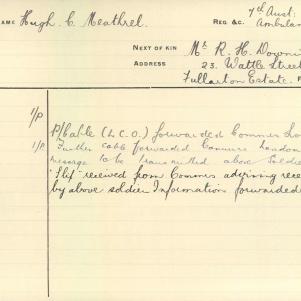 NAME Hugh. C. Meathrel. REG. &C. 7th Aust:
Ambulan
NEXT OF KIN Mr. R. H. Down
ADDRESS 23. Wattle Street
Fullarton Estate.
1/P P/bable (L.C.O.) forwarded Commrs Lo
1/P. Further cable forwarded Commrs London
message to be transmitted above Soldier
"Slip" received from Commrs advising rece
by above soldier Information forwarded